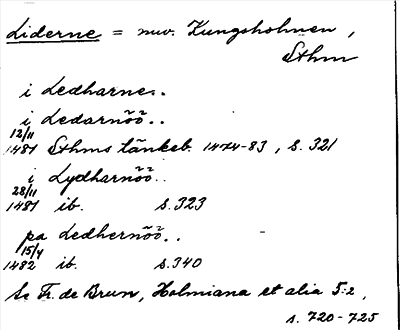 Liderne = nuv. Kungsholmen,
Sthm
i Ledharne.
i Ledarnöö..
12/11
1481 Sthms tänkeb. 1474-83, s. 321
i Lydharnöö..
28/11
1481 ib. s. 323
pa Ledhernöö..
15/4
1482 ib. s. 340
Se Fr. de Brun, Holmiana et alia 5:2,
s. 720-725